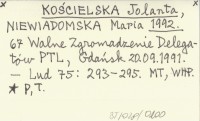 KOŚCIELSKA Jolanta,
NIEWIADOMSKA Maria 1992.
67 Walne Zgromadzenie Delega-
tów PTL, Gdańsk 20.09.1991.
— Lud 75: 293-295. MT, WHP.
* P, T.